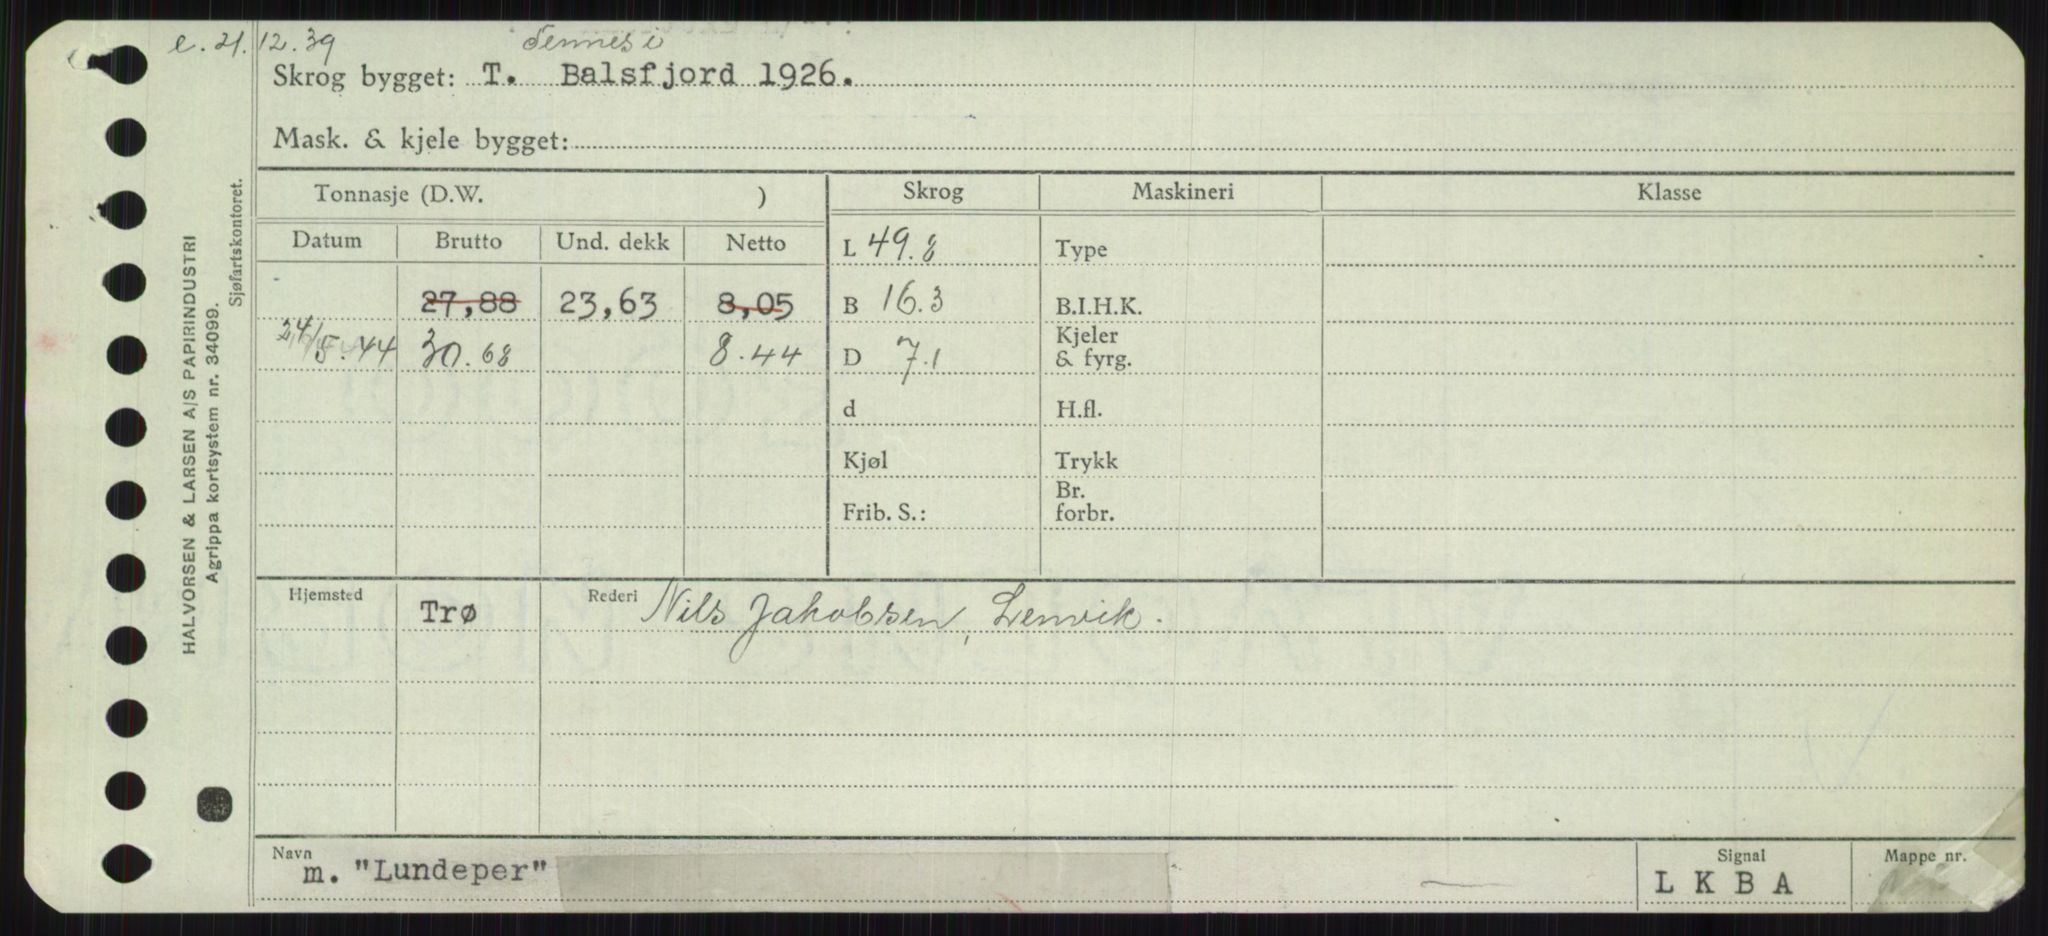 e. 21.12.39
Tennes i
Skrog bygget: T. Balsfjord 1926.
Mask. & kjele bygget:
Tonnasje (D.W. )
Skrog
Maskineri
Klasse
Datum Brutto Und. dekk Netto
L 49.8
Type
27,88 23,63 8,05
B 16.3
B.I.H.K.
24/5.44 30.68 8.44
D 7.1
Kjeler
& fyrg.
d
H.fl.
Kjøl
Trykk
Frib. S.:
Br.
forbr.
Hjemsted Trø
Rederi Nils Jakobsen, Lenvik.
Navn
m. "Lundeper"
Signal
L K B A
Mappe nr.
HALVORSEN & LARSEN A/S PAPIRINDUSTRI
Agrippa kortsystem nr. 34099.
Sjøfartskontoret.